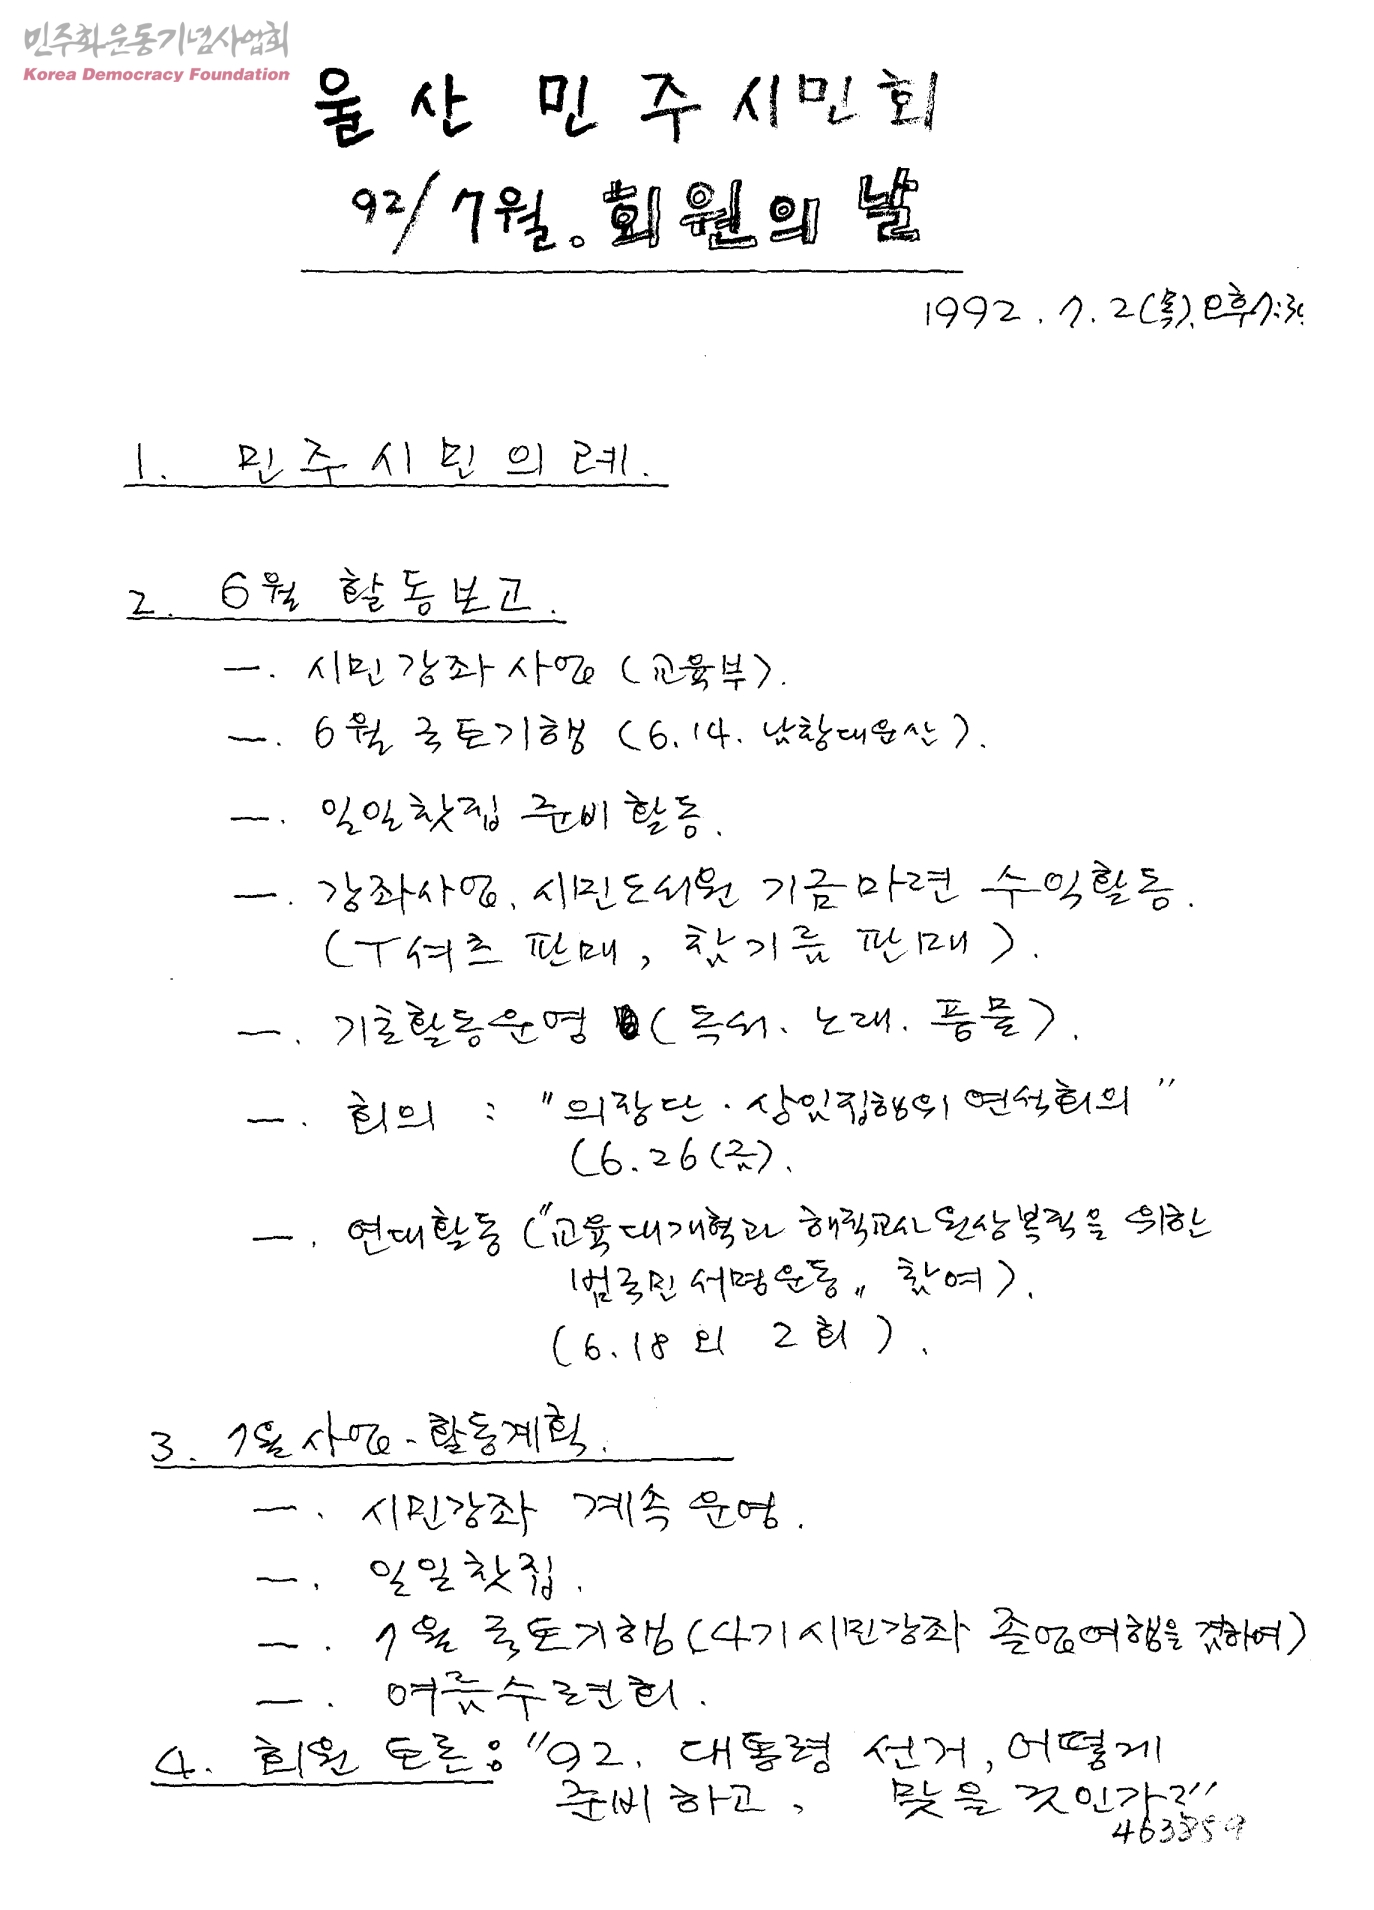 민주화운동기념사업회
Korea Democracy Foundation
울산 민주시민회
92/7월. 회원의 날
1992. 7. 2(목), 오후 7:30
1. 민주시민의례.
2. 6월 활동보고.
一. 시민강좌사업 (교육부).
一. 6월 국토기행 (6.14. 남창대운산).
一. 일일찻집 준비활동.
一. 강좌사업, 시민도서원 기금마련 수익활동.
(T셔츠 판매, 참기름 판매).
一. 기초활동운영 (독서. 노래. 풍물).
一. 회의 : "의장단·상임집행위 연석회의"
(6.26(금).
一. 연대활동 ("교육대개혁과 해직교사 원상복직을 위한
범국민 서명운동" 참여).
(6.18 외 2회).
3. 7월사업·활동계획.
一. 시민강좌 계속 운영.
一. 일일찻집.
一. 7월 국토기행(4기시민강좌 졸업여행을 겸하여)
一. 여름수련회.
4. 회원 토론: "92. 대통령 선거, 어떻게
준비하고, 맞을 것인가?"
463859